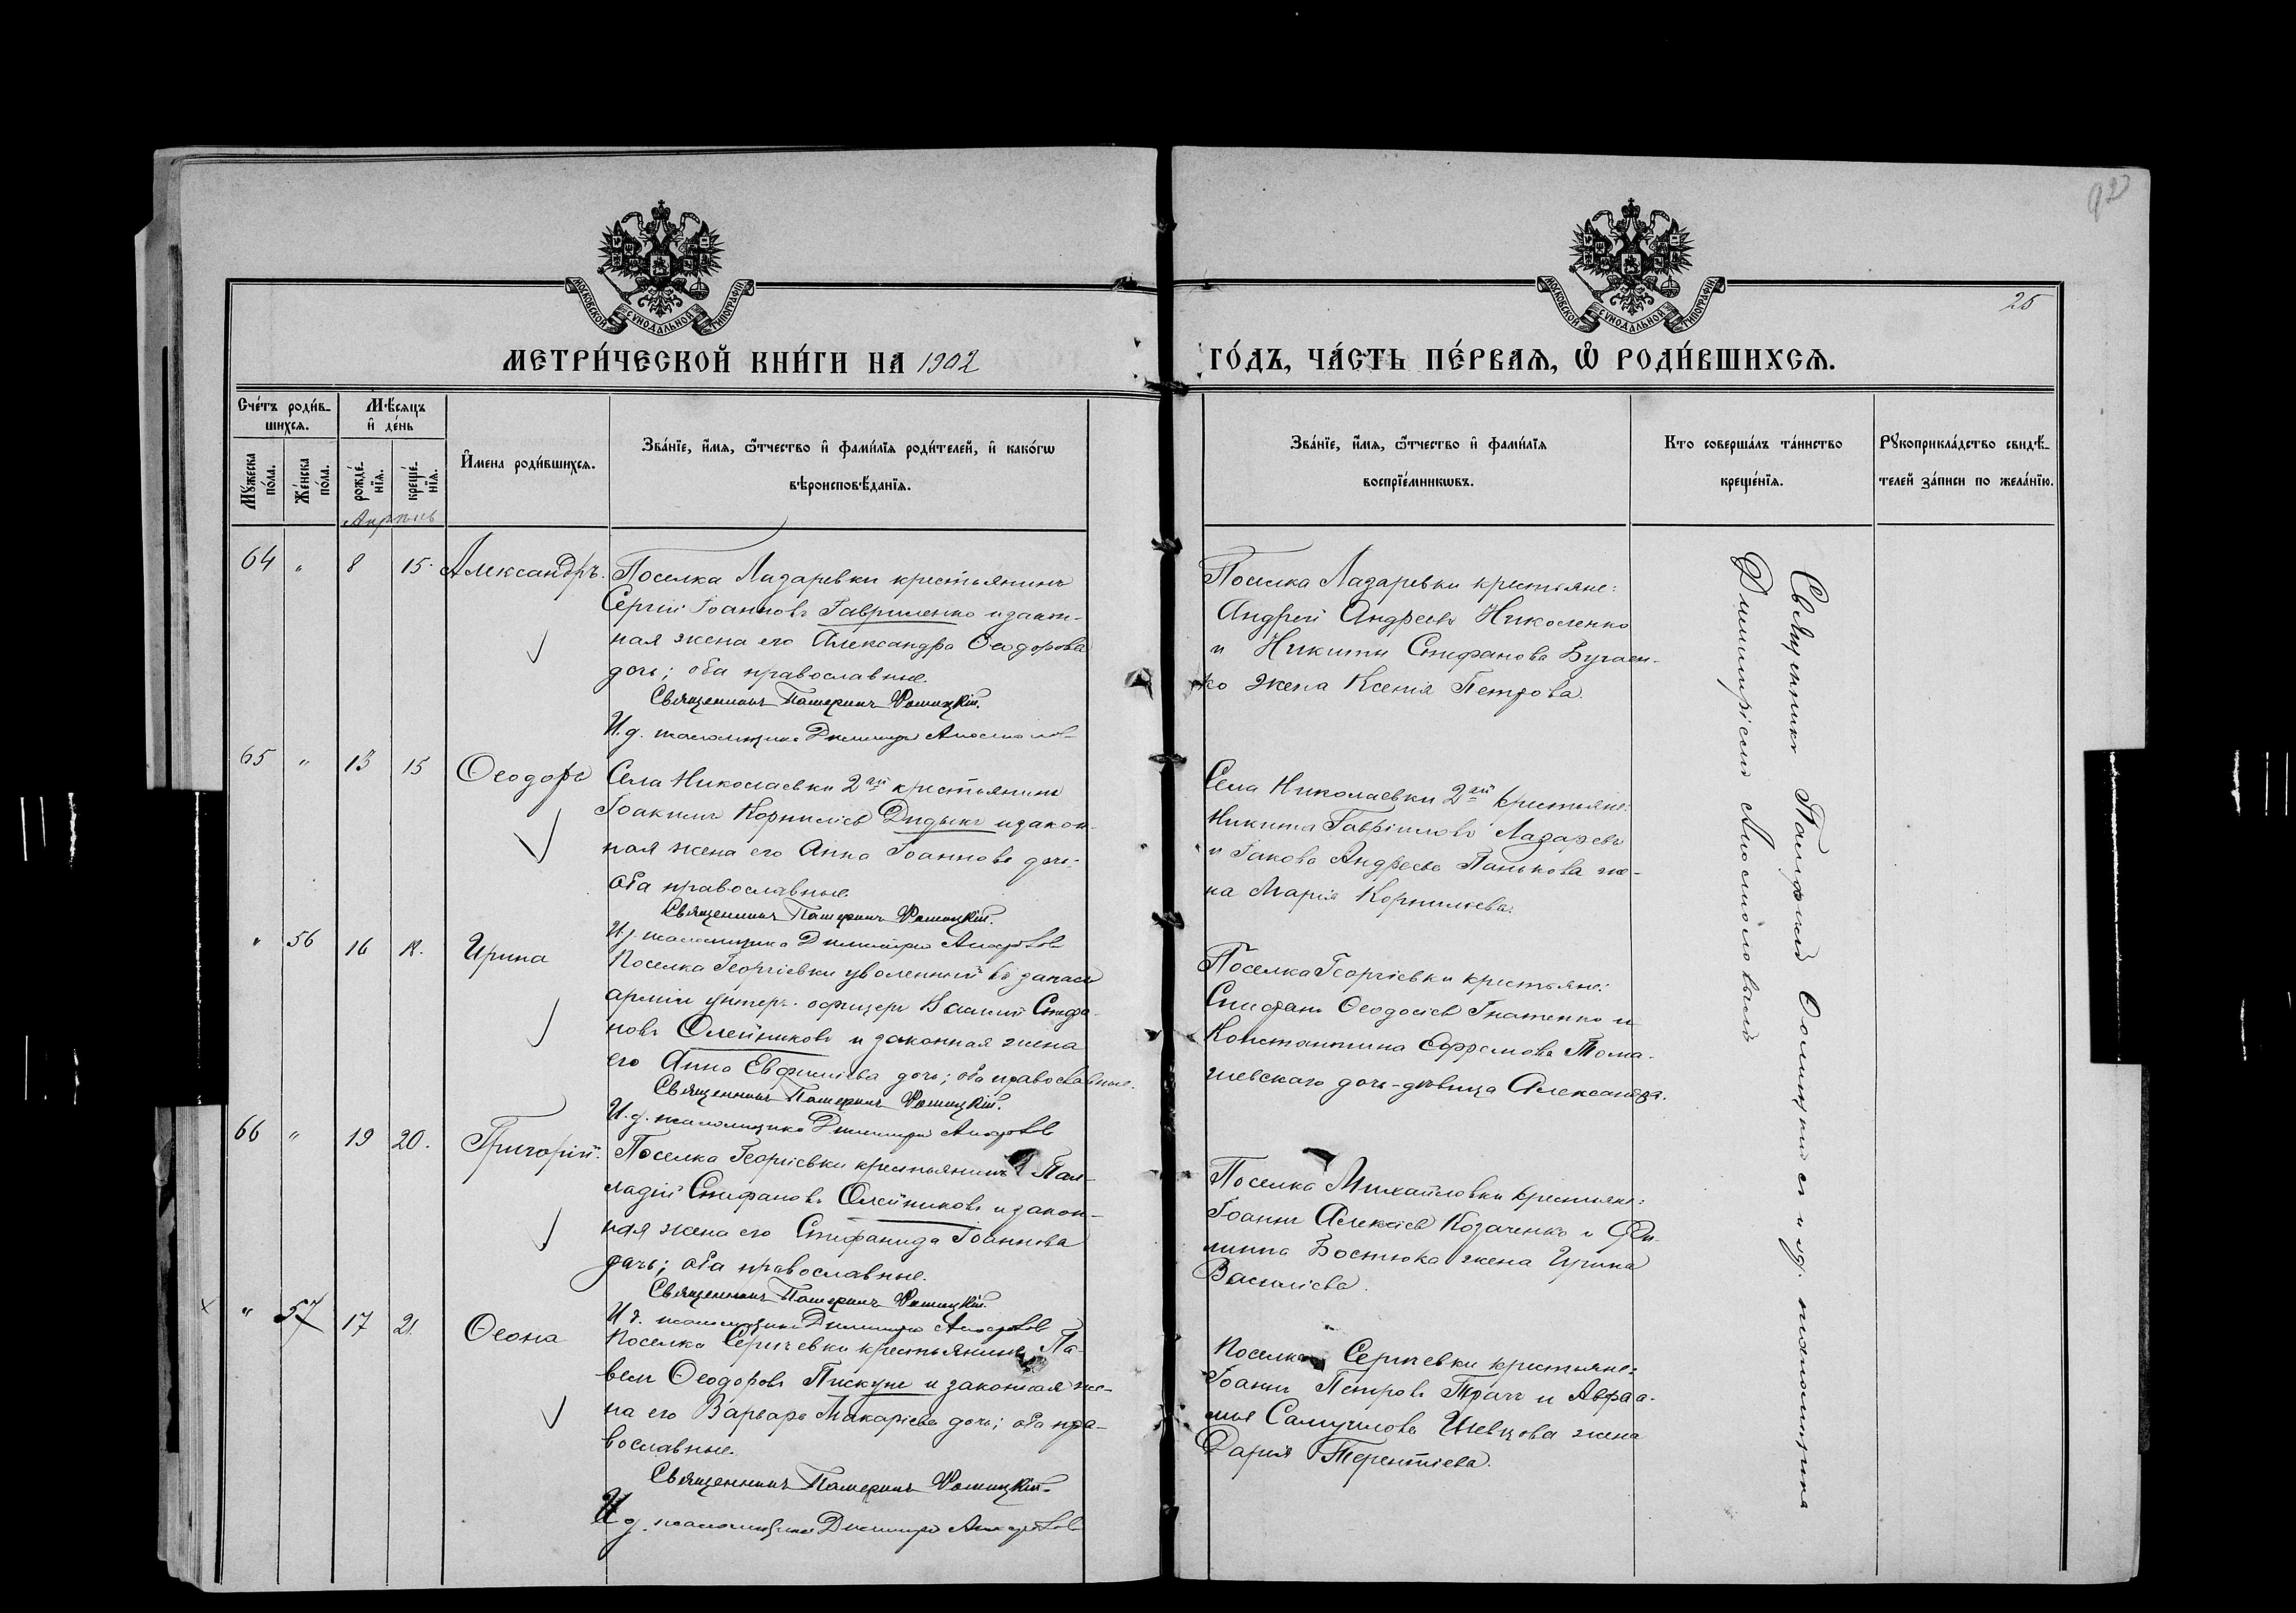 92
25
МОСКОВСКОЙ СѴНОДАЛЬНОЙ ТИПОГРАФІИ
МОСКОВСКОЙ СѴНОДАЛЬНОЙ ТИПОГРАФІИ
МЕТРИ́ЧЕСКОЙ КНИ́ГИ НА 1902
ГО́ДЪ, ЧА́СТЬ ПЕ́РВАѦ, Ѽ РОДИ́ВШИХСѦ.
Счéтъ роди́в-
шихсѧ.
Мꙋ́жеска
по́ла.
Же́нска
по́ла.
Мѣ́сѧцъ
и҆ де́нь
рожде́-
нїѧ.
креще́-
нїѧ.
Апрѣль
И҆мена роди́вшихсѧ.
Зва́нїе, и҆́мѧ, ѻ҆́тчество и҆ фами́лїѧ роди́телей, и҆ како́гѡ
вѣроисповѣ́данїѧ.
Зва́нїе, и҆́мѧ, ѻ҆́тчество и҆ фами́лїѧ
воспрїе́мникѡвъ.
Кто соверша́лъ та́инство
креще́нїѧ.
Рꙋкоприкла́дство свидѣ́-
телей за́писи по жела́нїю.
64 " 8 15. Александръ.
Поселка Лазаревки крестьянинъ
Сергій Іоанновъ Гавриленко и закон-
ная жена его Александра Ѳеодорова
дочь; оба православные.
Священникъ
И. д. псаломщика Димитрій Апостолов
Поселка Лазаревки крестьяне:
Андрей Андреевъ Николенко
и Никиты Стефанова Бугаен-
ко жена Ксенія Петрова.
65 " 13 15 Ѳеодоръ
Села Николаевки 2ой крестьянинъ
Іоакимъ Корниліевъ Дидыкъ и закон-
ная жена его Анна Іоаннова дочь.
оба православные
Священникъ
И. д. псаломщика Димитрій Апостолов
Села Николаевки 2ой крестьяне:
Никита Гавріиловъ Лазаревъ
и Іакова Андреева Панькова же-
на Марія Корниліева.
" 56 16 18. Ирина
Поселка Георгіевки уволенный въ запасъ
арміи унтеръ-офицеръ Василій Стефа-
новъ Олейниковъ и законная жена
его Анна Евфиміева дочь; оба православные.
Священникъ
И. д. псаломщика Димитрій Апостолов
Поселка Георгіевки крестьяне:
Стефанъ Ѳеодосіевъ Гнатенко и
Константина Ефремова Тома-
шевскаго дочь-девица Александра.
66 " 19 20. Григорій.
Поселка Георгіевки крестьянинъ Пал-
ладій Стефановъ Олейниковъ и закон-
ная жена его Стефанида Іоаннова
дочь; оба православные.
Священникъ
И. д. псаломщика Димитрій Апостолов
Поселка Михайловки крестьяне:
Іоаннъ Алексіевъ Козаченко и Фи-
липпа Костюка жена Ирина
Василіева.
" 57 17 21. Ѳеона
Поселка Сергіевки крестьянинъ Па-
велъ Ѳеодоровъ Пискунъ и законная же-
на его Варвара Макаріева дочь; оба пра-
вославные.
Священникъ
И. д. псаломщика Димитрій Апостолов
Поселка Сергіевки крестьяне:
Іоаннъ Петровъ Трачъ и Авраа-
мія Самуилова Шевцова жена
Дарія Терентіева.
Священникъ и и.д. псаломщика
Димитріемъ Апостоловымъ